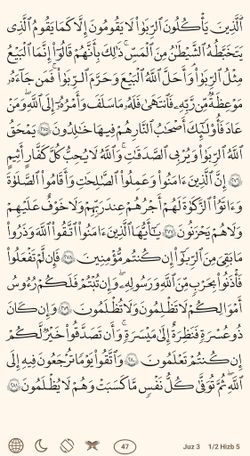 ٱلَّذِينَ يَأْكُلُونَ ٱلرِّبَوٰا۟ لَا يَقُومُونَ إِلَّا كَمَا يَقُومُ ٱلَّذِى
يَتَخَبَّطُهُ ٱلشَّيْطَٰنُ مِنَ ٱلْمَسِّ ۚ ذَٰلِكَ بِأَنَّهُمْ قَالُوٓا۟ إِنَّمَا ٱلْبَيْعُ
مِثْلُ ٱلرِّبَوٰا۟ ۗ وَأَحَلَّ ٱللَّهُ ٱلْبَيْعَ وَحَرَّمَ ٱلرِّبَوٰا۟ ۚ فَمَن جَآءَهُۥ
مَوْعِظَةٌ مِّن رَّبِّهِۦ فَٱنتَهَىٰ فَلَهُۥ مَا سَلَفَ وَأَمْرُهُۥٓ إِلَى ٱللَّهِ ۖ وَمَنْ
عَادَ فَأُو۟لَٰٓئِكَ أَصْحَٰبُ ٱلنَّارِ ۖ هُمْ فِيهَا خَٰلِدُونَ ٢٧٥ يَمْحَقُ
ٱللَّهُ ٱلرِّبَوٰا۟ وَيُرْبِى ٱلصَّدَقَٰتِ ۗ وَٱللَّهُ لَا يُحِبُّ كُلَّ كَفَّارٍ أَثِيمٍ
٢٧٦ إِنَّ ٱلَّذِينَ ءَامَنُوا۟ وَعَمِلُوا۟ ٱلصَّٰلِحَٰتِ وَأَقَامُوا۟ ٱلصَّلَوٰةَ
وَءَاتَوُا۟ ٱلزَّكَوٰةَ لَهُمْ أَجْرُهُمْ عِندَ رَبِّهِمْ وَلَا خَوْفٌ عَلَيْهِمْ
وَلَا هُمْ يَحْزَنُونَ ٢٧٧ يَٰٓأَيُّهَا ٱلَّذِينَ ءَامَنُوا۟ ٱتَّقُوا۟ ٱللَّهَ وَذَرُوا۟
مَا بَقِىَ مِنَ ٱلرِّبَوٰٓا۟ إِن كُنتُم مُّؤْمِنِينَ ٢٧٨ فَإِن لَّمْ تَفْعَلُوا۟
فَأْذَنُوا۟ بِحَرْبٍ مِّنَ ٱللَّهِ وَرَسُولِهِۦ ۖ وَإِن تُبْتُمْ فَلَكُمْ رُءُوسُ
أَمْوَٰلِكُمْ لَا تَظْلِمُونَ وَلَا تُظْلَمُونَ ٢٧٩ وَإِن كَانَ
ذُو عُسْرَةٍ فَنَظِرَةٌ إِلَىٰ مَيْسَرَةٍ ۚ وَأَن تَصَدَّقُوا۟ خَيْرٌ لَّكُمْ ۖ
إِن كُنتُمْ تَعْلَمُونَ ٢٨٠ وَٱتَّقُوا۟ يَوْمًا تُرْجَعُونَ فِيهِ إِلَى
ٱللَّهِ ۖ ثُمَّ تُوَفَّىٰ كُلُّ نَفْسٍ مَّا كَسَبَتْ وَهُمْ لَا يُظْلَمُونَ ٢٨١
47 Juz 3 1/2 Hizb 5